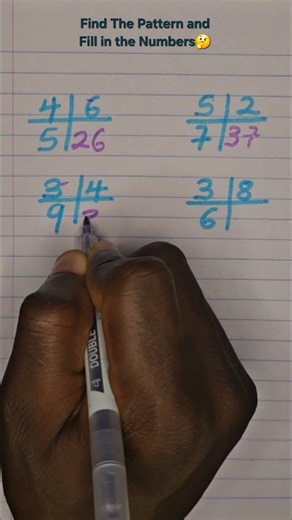 Find The Pattern and
Fill in the Numbers🤔
4 6
5 26
5 2
7 37
3 4
9
3 8
6
DOUBLE